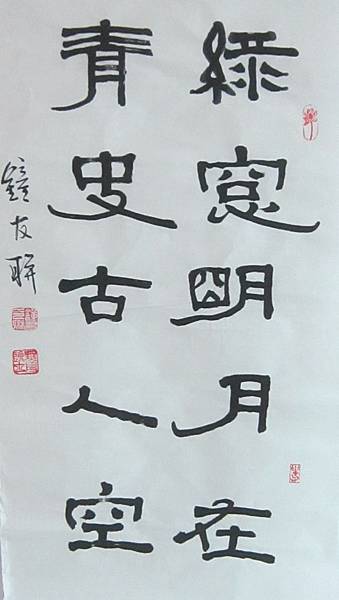 綠窓明月在
青史古人空
鐘友聯